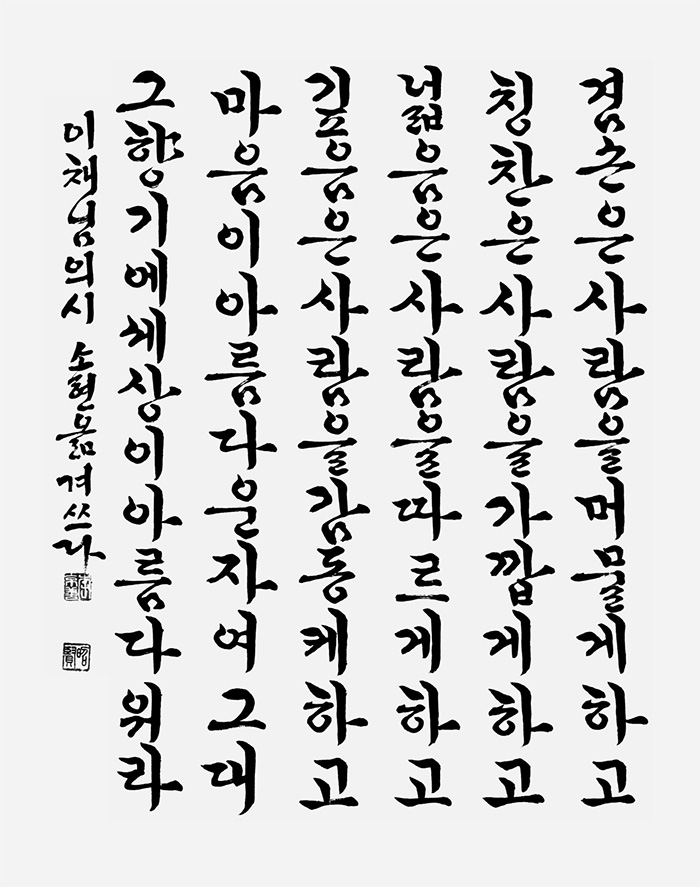 겸손은사람을머물게하고
칭찬은사람을가깝게하고
넓음은사람을따르게하고
깊음은사람을감동케하고
마음이아름다운자여그대
그향기에세상이아름다워라
이채님의시 소현옮겨쓰다
昭賢